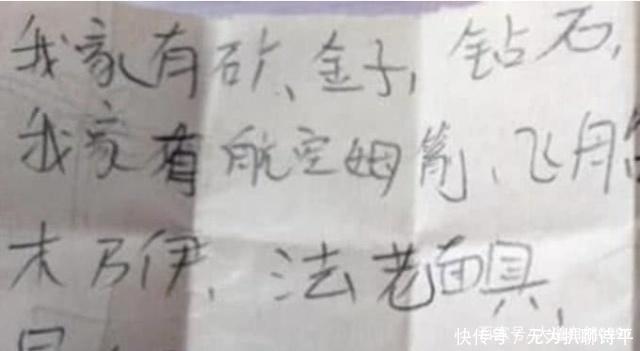 我家有矿、金子,钻石,
我家有航空姆舰、飞船
木乃伊,法老面具,
快传号/无为扒聊诗平